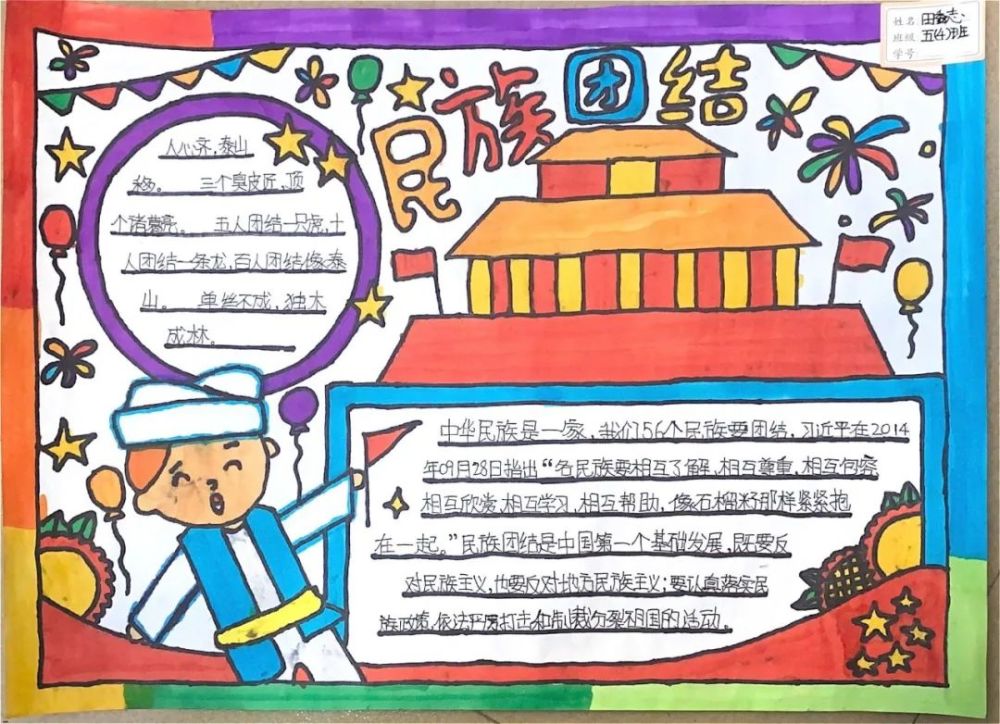 姓名 田
班级 五(4)班
学号
民族团结
人心齐,泰山
移。 三个臭皮匠,顶
个诸葛亮。 五人团结一只虎,十
人团结一条龙,百人团结像泰
山。 单丝不成,独木
成林。
中华民族是一家,我们56个民族要团结,习近平在2014
年09月28日指出“各民族要相互了解,相互尊重,相互包容
相互欣赏,相互学习,相互帮助,像石榴籽那样紧紧抱
在一起。”民族团结是中国第一个基础发展,既要反
对民族主义,也要反对地方民族主义;要认真落实民
族政策,依法严厉打击和制裁分裂祖国的活动。